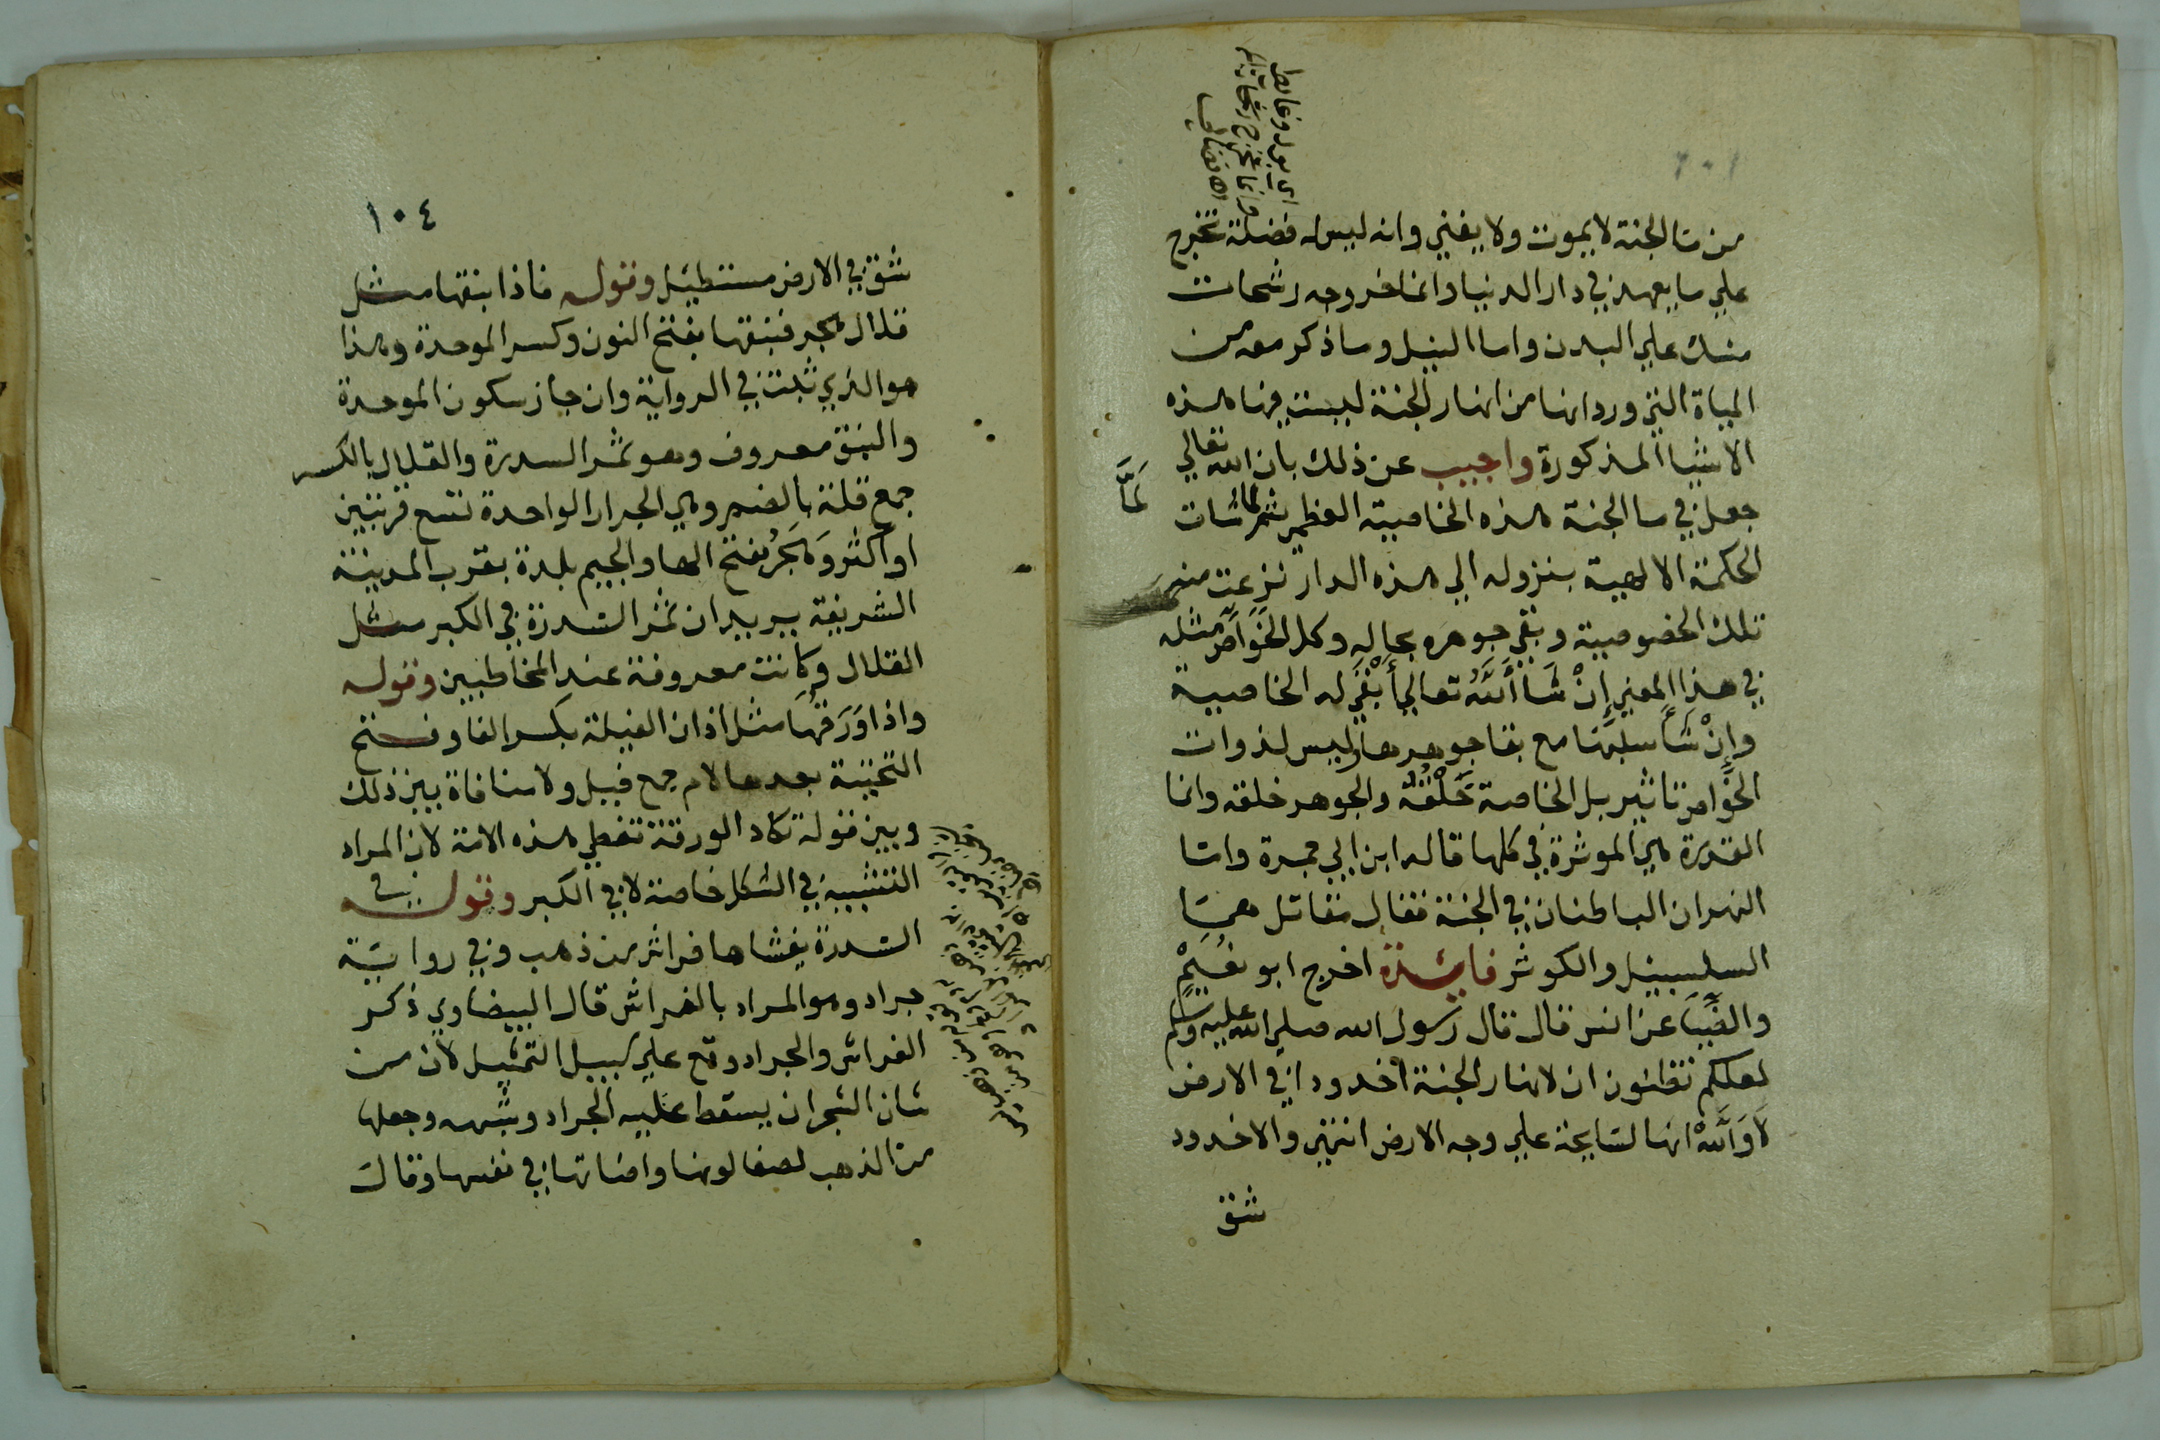 من ما الجنة لا يموت ولا يفني وانه ليس له فضلة تخرج
علي ما يعهد في دار الدنيا وانما خروجه رشحات
مسك علي البدن واما النيل وما ذكر معه من
المياة التي ورد انها من انهار الجنة ليست فيها هذه
الاشيا المذكورة واجيب عن ذلك بان الله تعالي
جعل في ما الجنة هذه الخاصية العظمي ثم لما شات
الحكمة الالهية بنزوله الي هذه الدار نزعت منه
تلك الخصوصية وبقي جوهره بحاله وكل الخَوَاصّ مثله
في هذا المعني إنْ شَا اللَّهُ تعالي أَبْقَي له الخاصية
وإِنْ شَأ سلبها مع بقا جوهرها وليس لذوات
الخَوَاص تاثير بل الخاصة خَلْقُهُ والجوهر خلقه وانما
القدرة هي الموثرة في كلها قاله ابن ابي جمرة واما
النهران الباطنان في الجنة فقال مقاتل هما
السلسبيل والكوثر فايدة اخرج ابو نُعَيْم
والضّيَا عن انس قال قال رسول الله صلي الله عليه وسلم
لعلكم تظنون ان لانهار الجنة اخدودا في الارض
لاَ وَاللَّهْ انها لسَايحة علي وجه الارض انتهي والاخدود
شق
اي بول وغايط
وانما تخرج رشحات الخ
اه فضالي
لَمَّا
١٠٤
شق في الارض مستطيل وقوله فاذا نبقها مثل
قلال هجر فنبقها بفتح النون وكسر الموحدة وهذا
هو الذي ثبت في الرواية وان جاز سكون الموحدة
والنبق معروف وهو ثمر السدرة والقلال بالكسر
جمع قلة بالضم وهي الجرار الواحدة تسع قربتين
او اكثر وَهَجَرُ بفتح الها والجيم بلدة بقرب المدينة
الشريفة يريد ان ثمر السدرة في الكبر مثل
القلال وكانت معروفة عند المخاطبين وقوله
واذا وَرَقُهَا مثل اذان الفيلة بكسر الفا وفتح
التحتية بعدها لام جمع فيل ولا منافاة بين ذلك
وبين قوله تكاد الورقة تغطي هذه الامة لان المراد
التشبيه في الشكل خاصة لا في الكبر وقوله في
السدرة يغشاها فراش من ذهب وفي رواية
جراد وهو المراد بالفراش قال البيضاوي ذكر
الفراش والجراد وقع علي سبيل التمثيل لان من
شان الشجر ان يسقط عليه الجراد وشبهه وجعلها
من الذهب لصفا لونها واضاتها في نفسها وقال